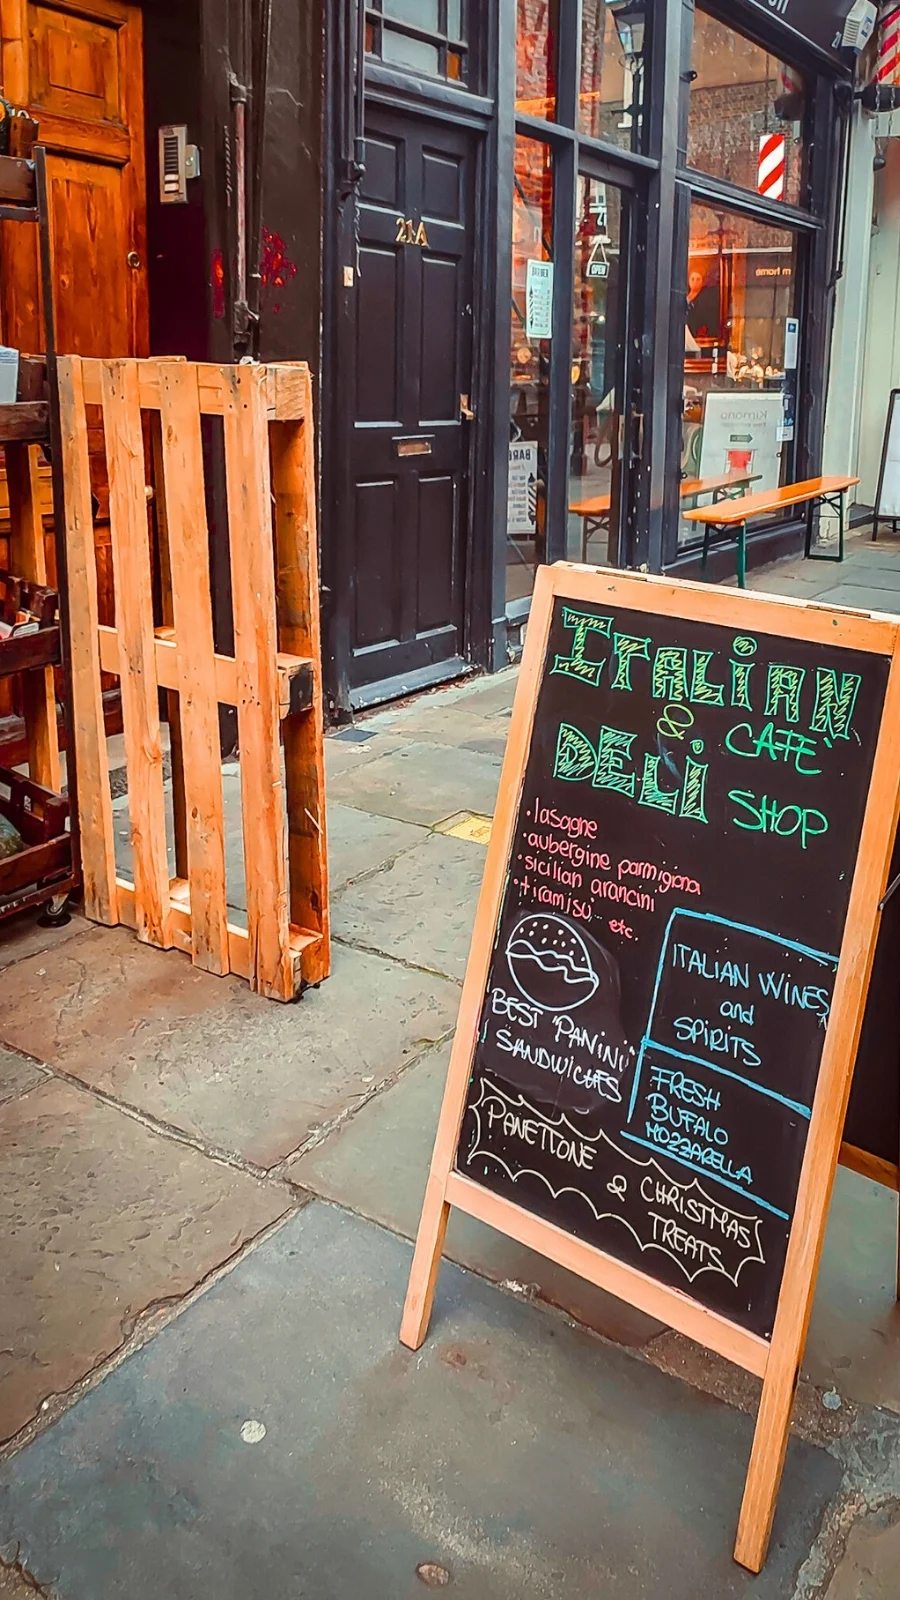 21A
OPEN
BARBER
m home
Kimono
BARB
ITALIAN
& CAFE`
DELI SHOP
• lasagne
• aubergine parmigiana
• sicilian arancini
• tiramisù... etc.
BEST "PANINI"
SANDWICHES
ITALIAN WINES
and
SPIRITS
FRESH
BUFALO
MOZZARELLA
PANETTONE & CHRISTMAS
TREATS